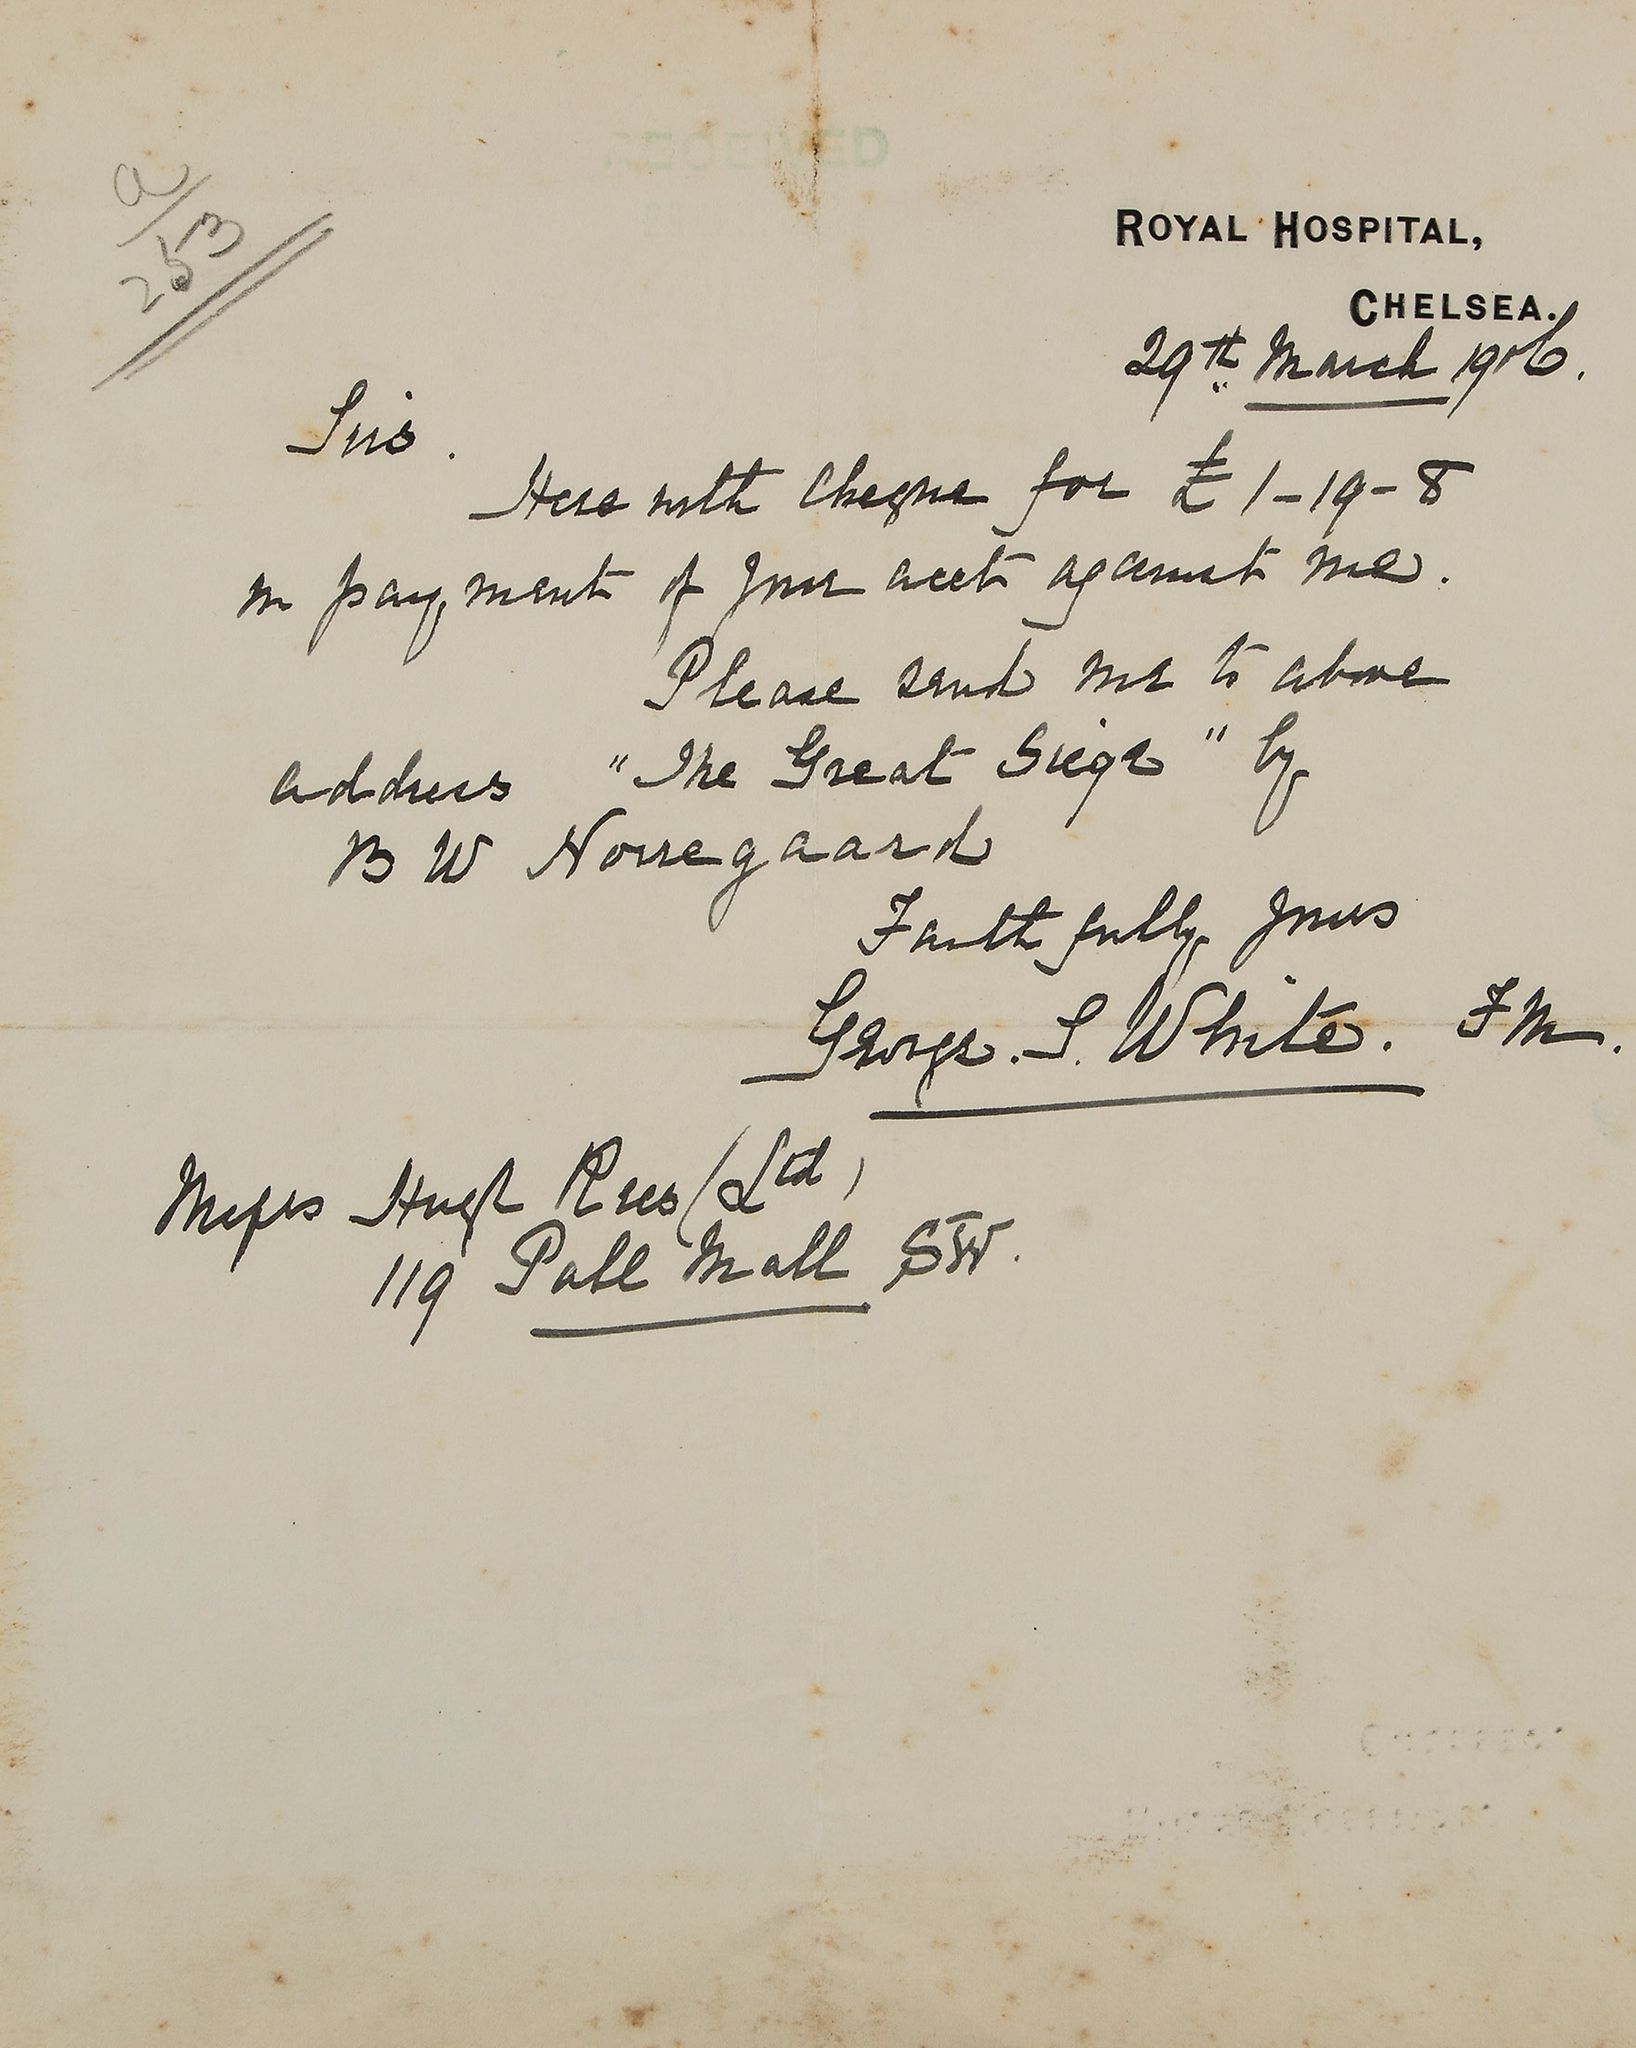 RECEIVED
a/253
ROYAL HOSPITAL,
CHELSEA.
29th March 1906.
Sirs.
Herewith cheque for £1-19-8
in payment of your acct against me.
Please send me to above
address "The Great Siege" by
B W Norregaard
Faithfully yours
George. S. White. FM.
Messrs Hugh Rees (Ltd)
119 Pall Mall SW.